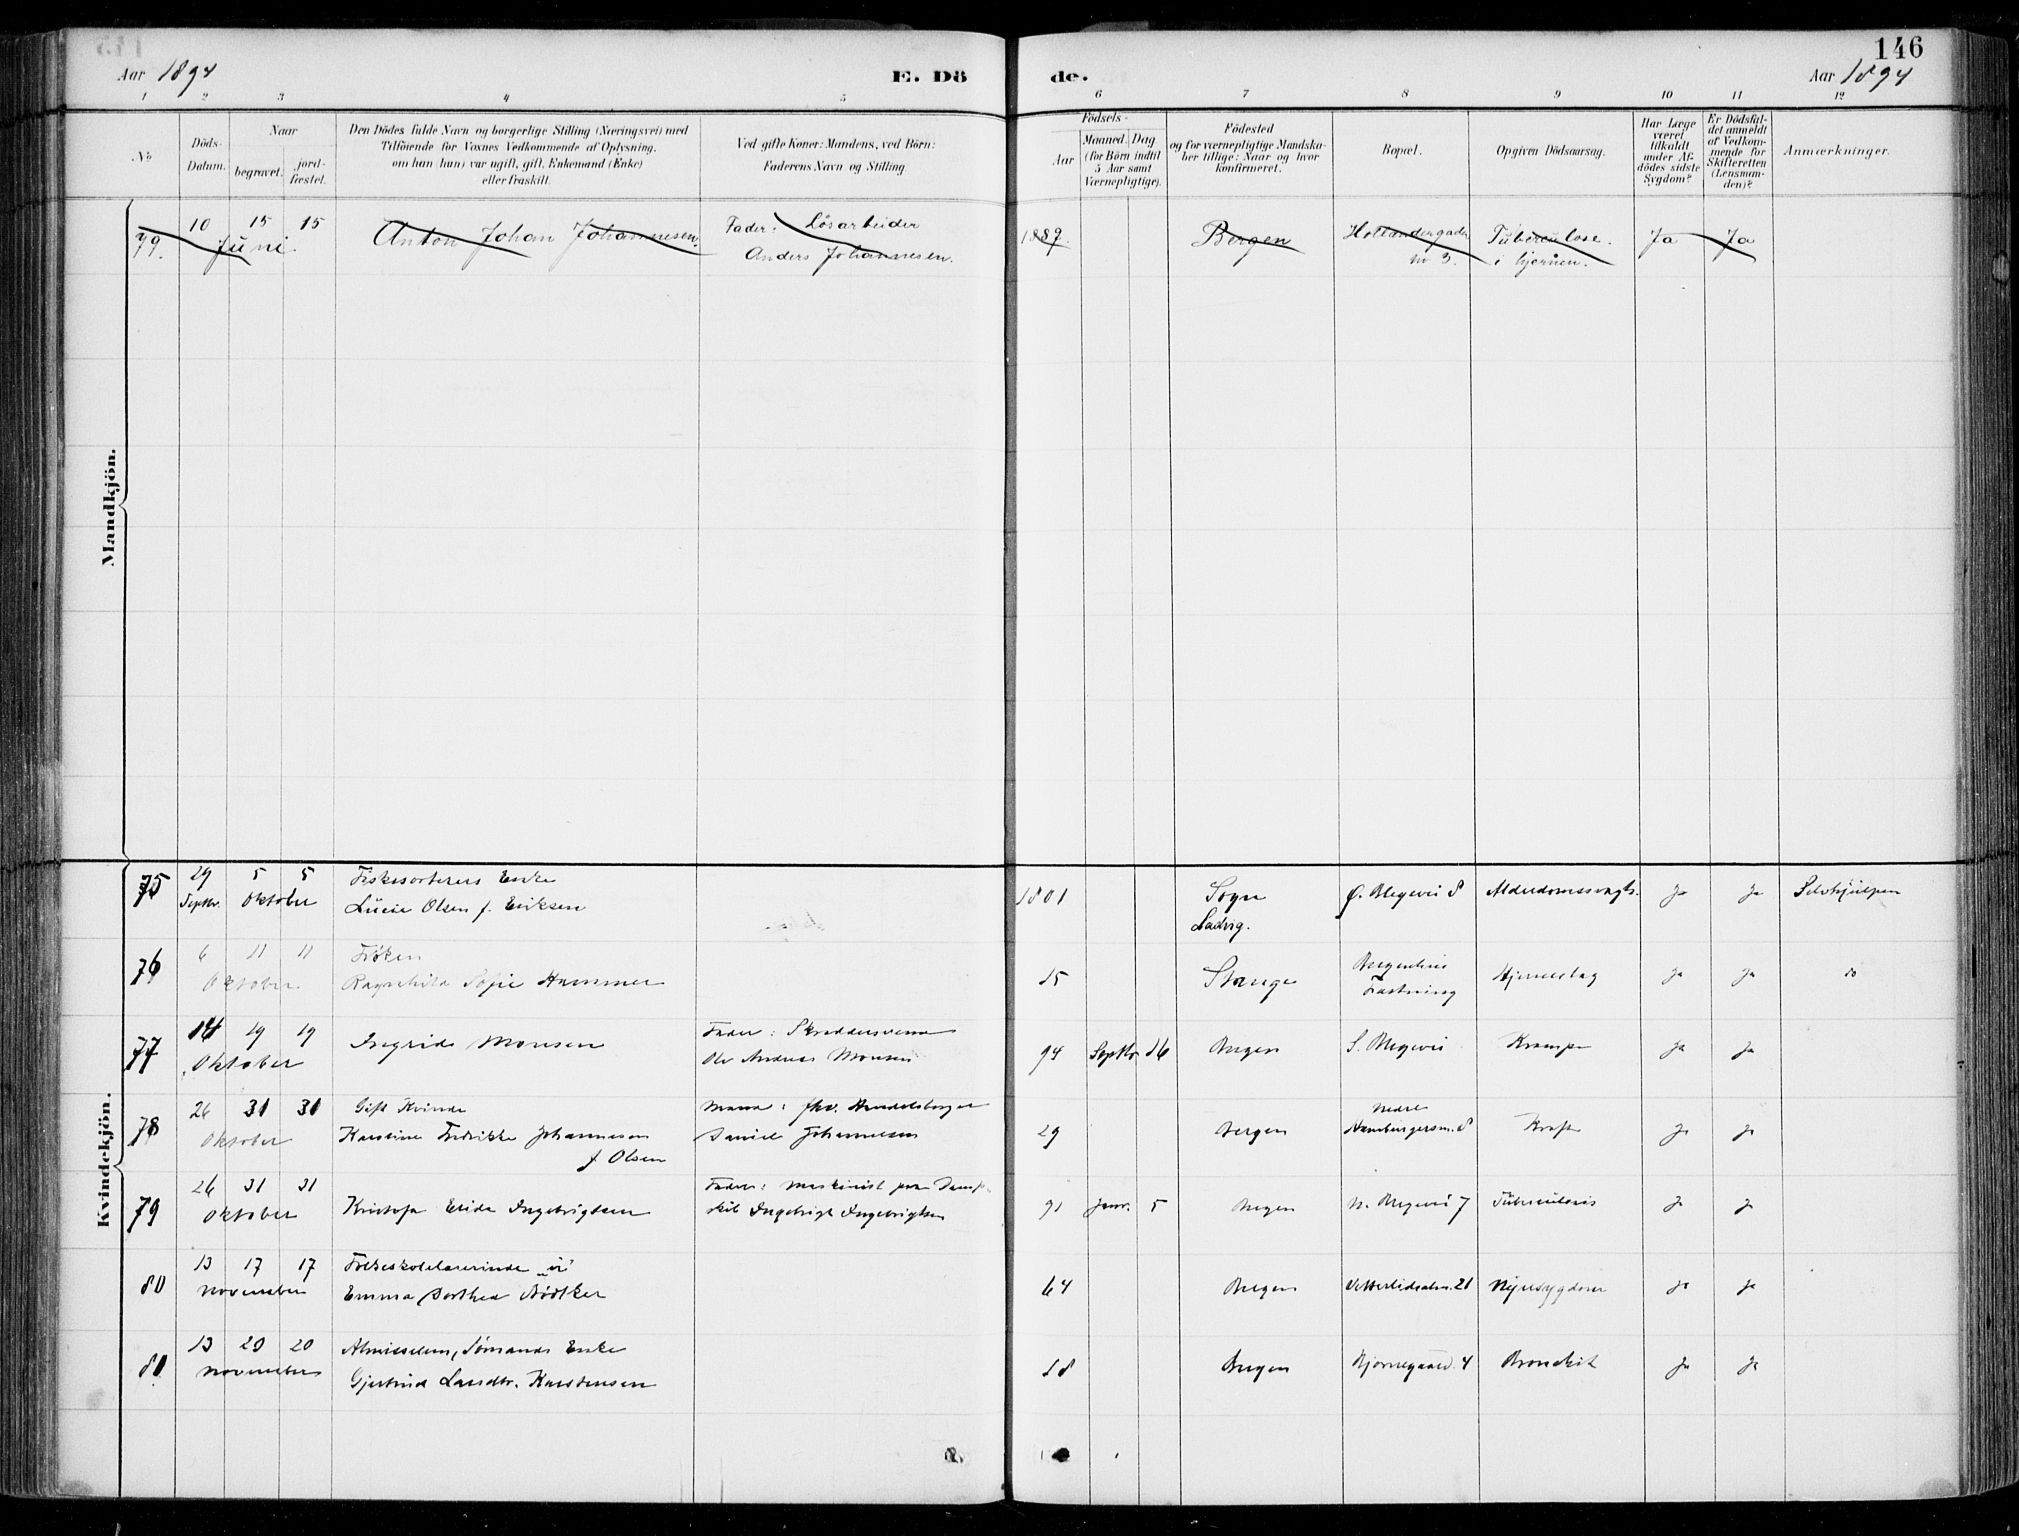 146
Aar 1894
E. Dö
de.
Aar 1894
1 2 3 4 5 6 7 8 9 10 11 12
No
Döds-
Datum.
Naar
begravet.
jord-
fæstet.
Den Dödes fulde Navn og borgerlige Stilling (Næringsvei) med
Tilföiende for Voxnes Vedkommende af Oplysning,
om han (hun) var ugift, gift, Enkemand (Enke)
eller fraskilt.
Ved gifte Koner: Mandens, ved Börn:
Faderens Navn og Stilling.
Födsels-
Aar
Maaned. Dag
(for Börn indtil
5 Aar samt
Værnepligtige).
Födested
og for værnepligtige Mandska-
ber tillige: Naar og hvor
konfirmeret.
Bopæl.
Opgiven Dödsaarsag.
Har Læge
været
tilkaldt
under Af-
dödes sidste
Sygdom?
Er Dödsfal-
det anmeldt
af Vedkom-
mende for
Skifteretten
(Lensman-
den)?
Anmærkninger.
Mandkjön.
79. 10 15 15
Juni
Anton Johan Johannesen.
Fader: Løsarbeider
Anders Johannesen.
1889. Bergen
Hollandergaden
no 3.
Tuberculose.
i hjernen.
Ja Ja
Kvindekjön.
75 29 5 5
Septbr. Oktober
Fiskesorterers Enke
Lucie Olsen f. Eriksen
1801
Sogn
Ladvig.
Ø. Blegevei 8 Alderdomssvagh. Ja Ja Selvhjulpen
76 6 11 11
Oktober
Frøken
Ragnhild Sofie Hammer
15 Stange
Bergenhus
Fæstning
Hjerneslag Ja Ja do
77 14 19 19
Oktober
Ingrid Monsen
Fader: Skreddersvend
Ole Andreas Monsen
94 Septbr 16 Bergen S. Blegevei Krampe Ja Ja
78 26 31 31
Oktober
Gift Kvinde
Karstine Fredrikke Johannesen
f Olsen
Mand: fhv. Handelsborger
Daniel Johannesen
29 Bergen
Nedre
Hamburgersm. 8
Kræft Ja Ja
79 26 31 31
Oktober
Kristofa Elida Ingebrigtsen
Fader: Maskinist paa Damp-
skib Ingebrigt Ingebrigtsen
91 Janr. 5 Bergen N. Blegevei 7 Tuberculosis Ja Ja
80 13 17 17
November
Folkeskolelærerinde
Emma Dorthea Bødtker
64 Bergen Vetterlidsalm. 21 Nyresygdom Ja Ja
81 13 20 20
November
Almisselem, Sømands Enke
Gjertrud Lambr. Karstensen
18 Bergen Bjørnegaard. 4 Bronchit Ja Ja